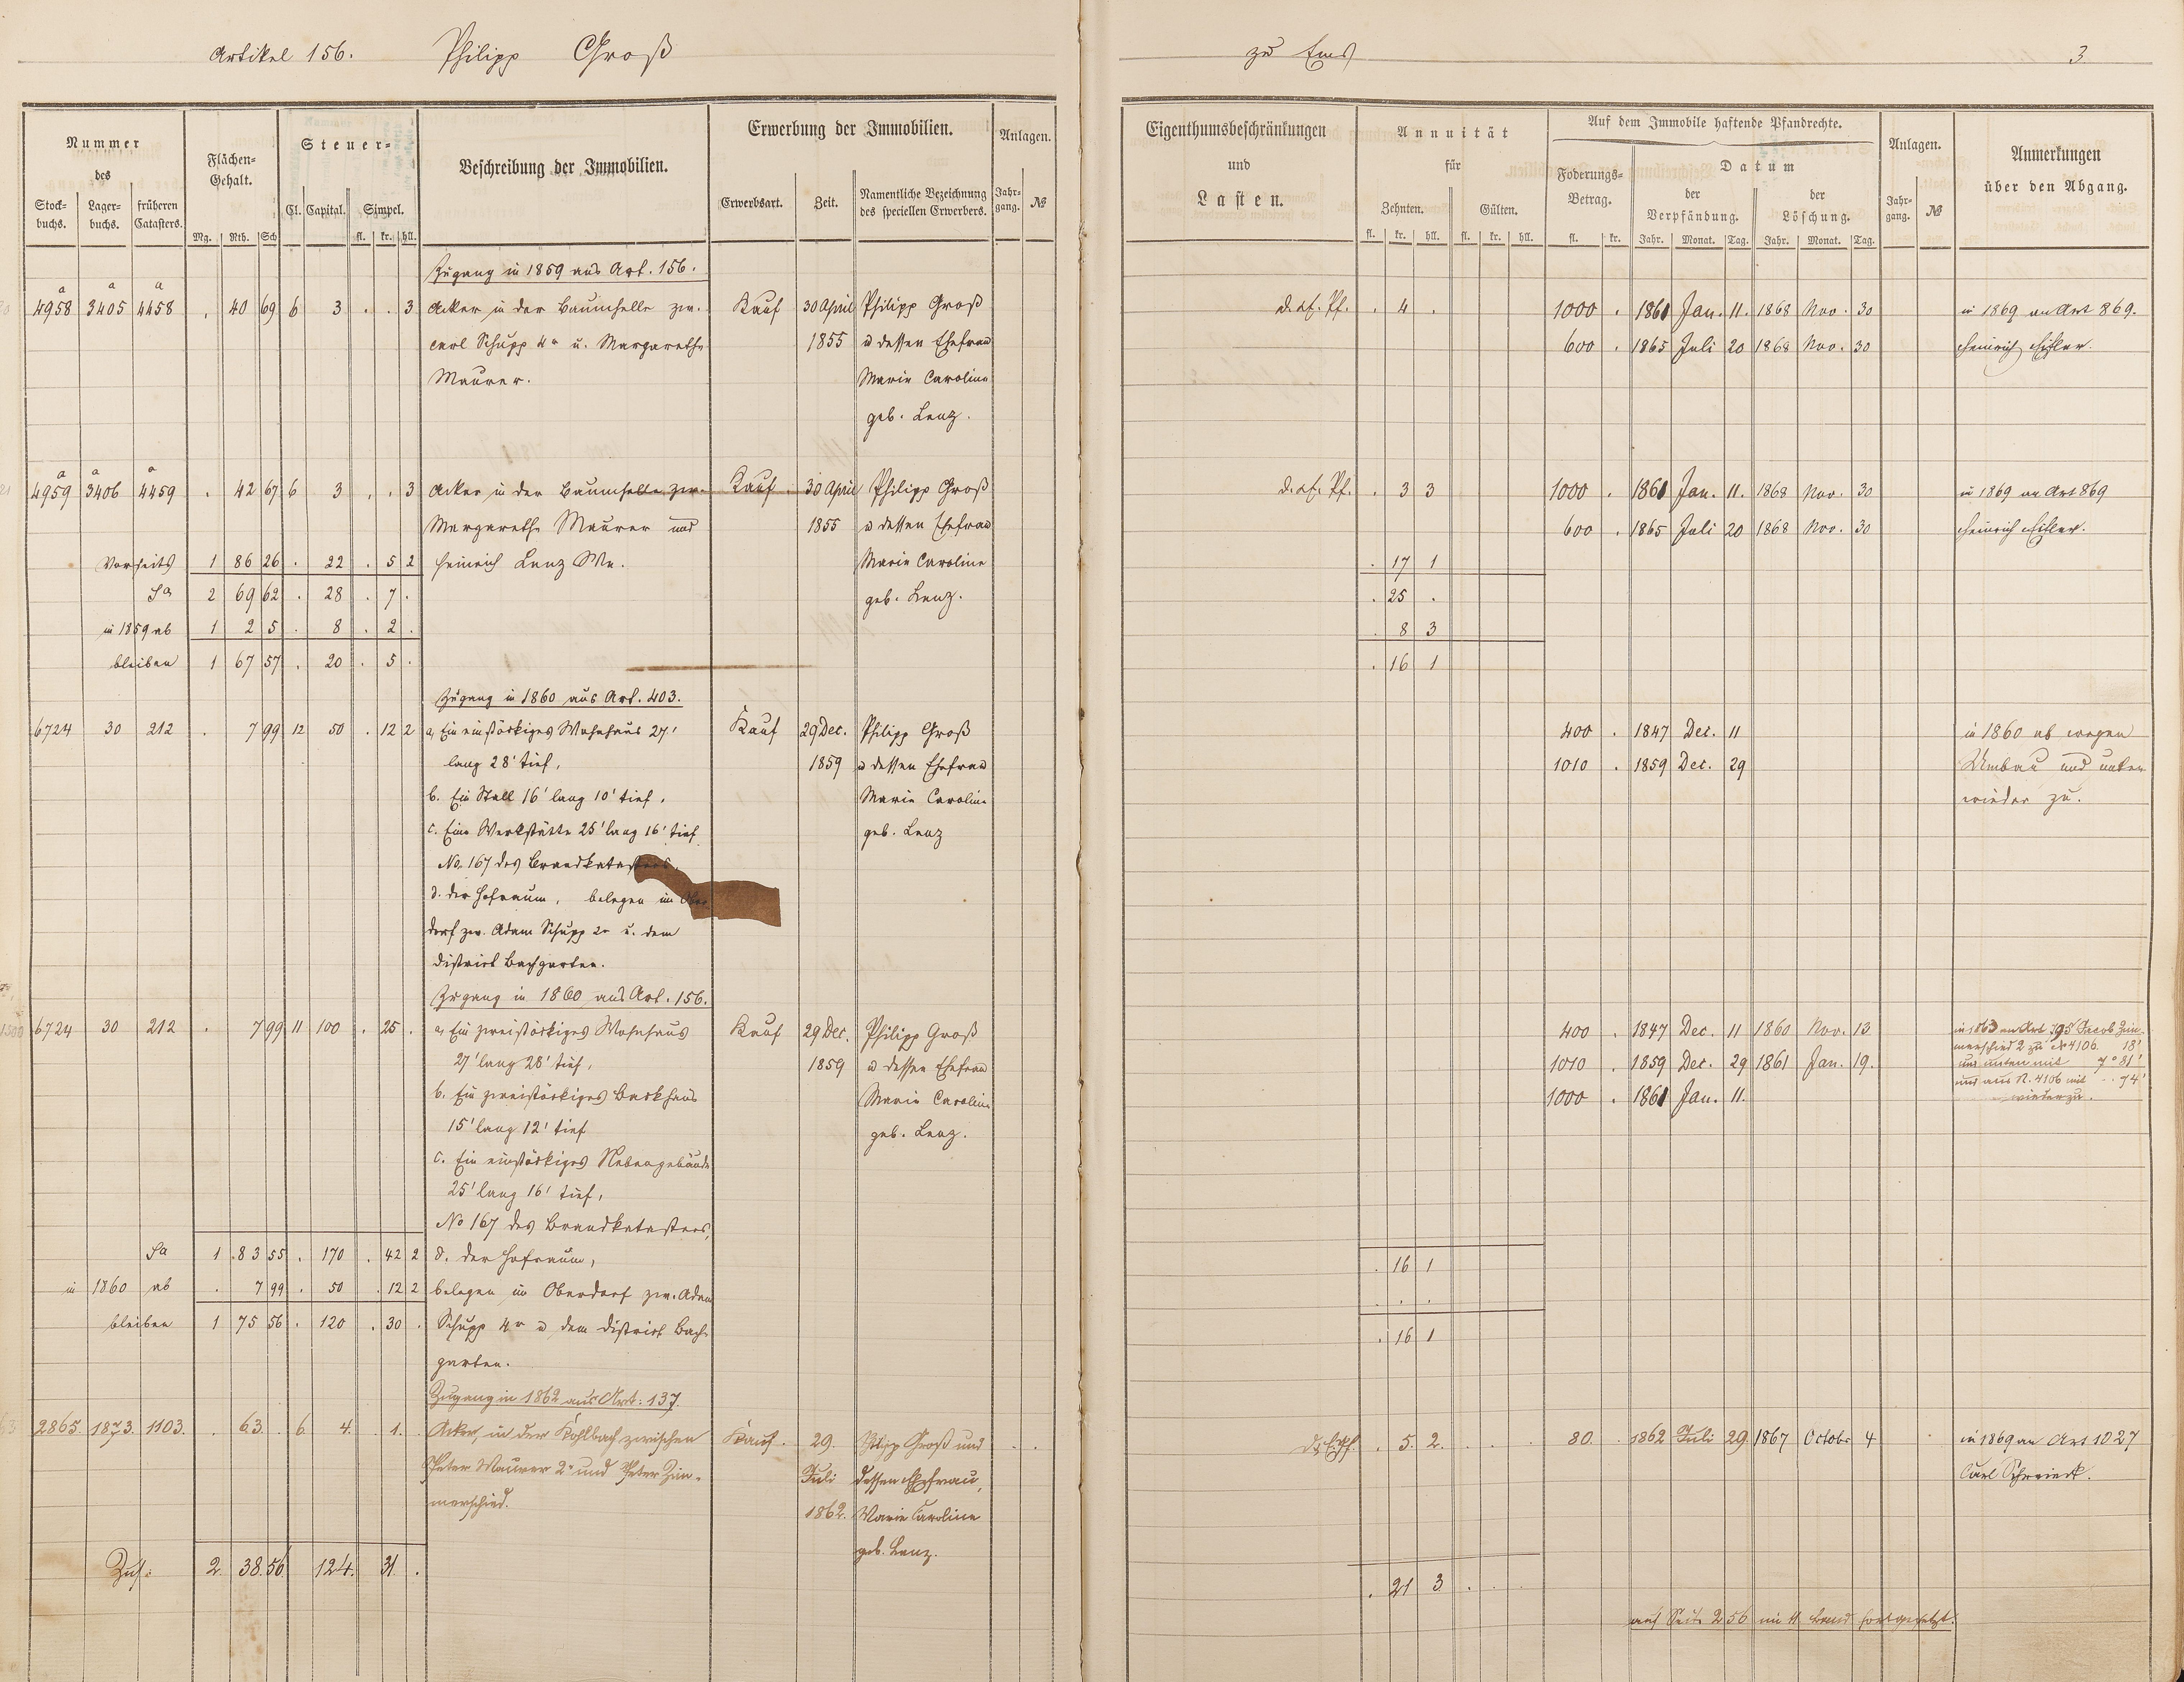 Artikel 156. Philipp Groß
zu Ems 3
Nummer des
Stock-buchs. Lager-buchs. früheren Catasters.
Flächen-Gehalt.
Mg. Rth. Sch
Steuer-
Cl. Capital. Simpel.
fl. kr. hll.
Beschreibung der Immobilien.
Erwerbung der Immobilien.
Erwerbsart. Zeit. Namentliche Bezeichnung des speciellen Erwerbers.
Anlagen.
Jahr-gang. №
Eigenthumsbeschränkungen
und
Lasten.
Annuität
für
Zehnten. Gülten.
fl. kr. hll. fl. kr. hll.
Auf dem Immobile haftende Pfandrechte.
Foderungs-Betrag.
fl. kr.
Datum
der Verpfändung. der Löschung.
Jahr. Monat. Tag. Jahr. Monat. Tag.
Anlagen.
Jahr-gang. №
Anmerkungen
über den Abgang.
Zugang in 1859 aus Art. 156.
a a a
4958 3405 4458 . 40 69 6 3 . . 3 Acker in der Baumhelle zw. Kauf 30 April Philipp Groß . 4 . 1000 . 1861 Jan. 11. 1868 Nov. 30 in 1869 an Art 869.
Carl Schupp 4r u. Margarethe 1855 u dessen Ehefrau 600 . 1865 Juli 20 1868 Nov. 30 Heinrich
Maurer. Marie Caroline
geb. Lenz.
a a a
4959 3406 4459 . 42 67 6 3 . . 3 Acker in der Baumhelle zw. Kauf 30 April Philipp Groß . 3 3 1000 . 1861 Jan. 11. 1868 Nov. 30 in 1869 an Art 869
Margarethe Maurer und 1855 u dessen Ehefrau 600 . 1865 Juli 20 1868 Nov. 30 Heinrich
Vorseits 1 86 26 . 22 . 5 2 Heinrich Lenz We. Marie Caroline . 17 1
Sa 2 69 62 . 28 . 7 . geb. Lenz. . 25 .
in 1859 ab 1 2 5 . 8 . 2 . . 8 3
bleiben 1 67 57 . 20 . 5 . . 16 1
Zugang in 1860 aus Art. 403.
6724 30 212 . 7 99 12 50 . 12 2 a, Ein einstöckiges Wohnhaus 27' Kauf 29 Dec. Philipp Groß 400 . 1847 Dec. 11 in 1860 ab wegen
lang 28' tief, 1859 u dessen Ehefrau 1010 . 1859 Dec. 29 Umbau und unten
b. Ein Stall 16' lang 10' tief, Marie Caroline wieder zu.
c. Eine Werkstätte 25' lang 16' tief geb. Lenz
No. 167 des Brandkatasters,
d. der Hofraum, belegen im Ober-
dorf zw. Adam Schupp 2r u. dem
District Bachgarten.
Zugang in 1860 aus Art. 156.
6724 30 212 . 7 99 11 100 . 25 . a, Ein zweistöckiges Wohnhaus Kauf 29 Dec. Philipp Groß 400 . 1847 Dec. 11 1860 Nov. 13 in 1863 an Art 195 Jacob Zim-
27' lang 28' tief, 1859 u dessen Ehefrau 1010 . 1859 Dec. 29 1861 Jan. 19. merschied 2 zu № 4106. 18'
b. Ein zweistöckiges Backhaus Marie Caroline 1000 . 1861 Jan. 11. und unten mit 7° 81'
15' lang 12' tief geb. Lenz. und aus N. 4106 mit 74'
wieder zu.
c. Ein einstöckiges Nebengebäude
25' lang 16' tief,
No 167 des Brandkatasters,
Sa 1 83 55 . 170 . 42 2 d. der Hofraum, . 16 1
in 1860 ab . 7 99 . 50 . 12 2 belegen im Oberdorf zw. Adam . . .
bleiben 1 75 56 . 120 . 30 . Schupp 4r u dem District Bach- . 16 1
garten.
Zugang in 1862 aus Art: 137.
2865. 1873. 1103. . 63. . 6. 4. . 1. . Acker, in der Kohlbach zwischen Kauf. 29. Philipp Groß und . 5. 2. 80. . 1862 Juli 29. 1867 Octobr 4 in 1869 an Art 1027
Peter Maurer 2r und Peter Zim- Juli dessen Ehefrau, Carl
merschied. 1862. Marie Caroline
geb. Lenz.
Zus: 2. 38. 56. 124. 31. . . 21 3.
auf Seite 256 im II Band fortgesetzt.